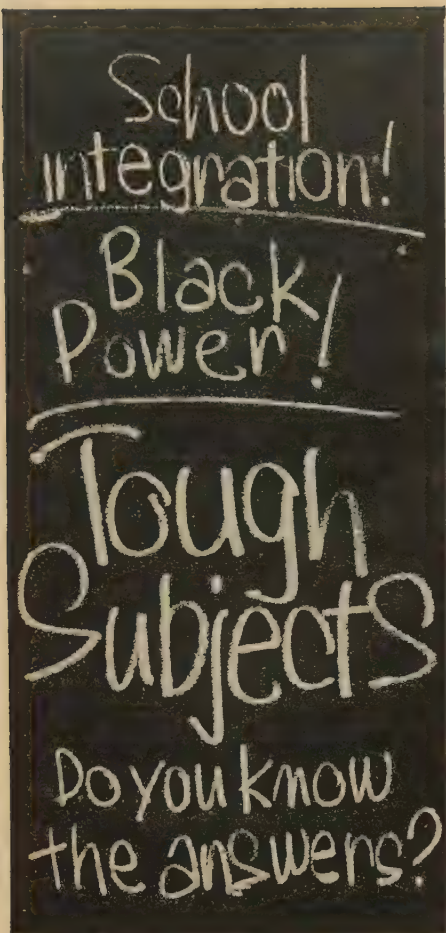 School
integration!
Black
Power!
Tough
Subjects
Do you know
the answers?